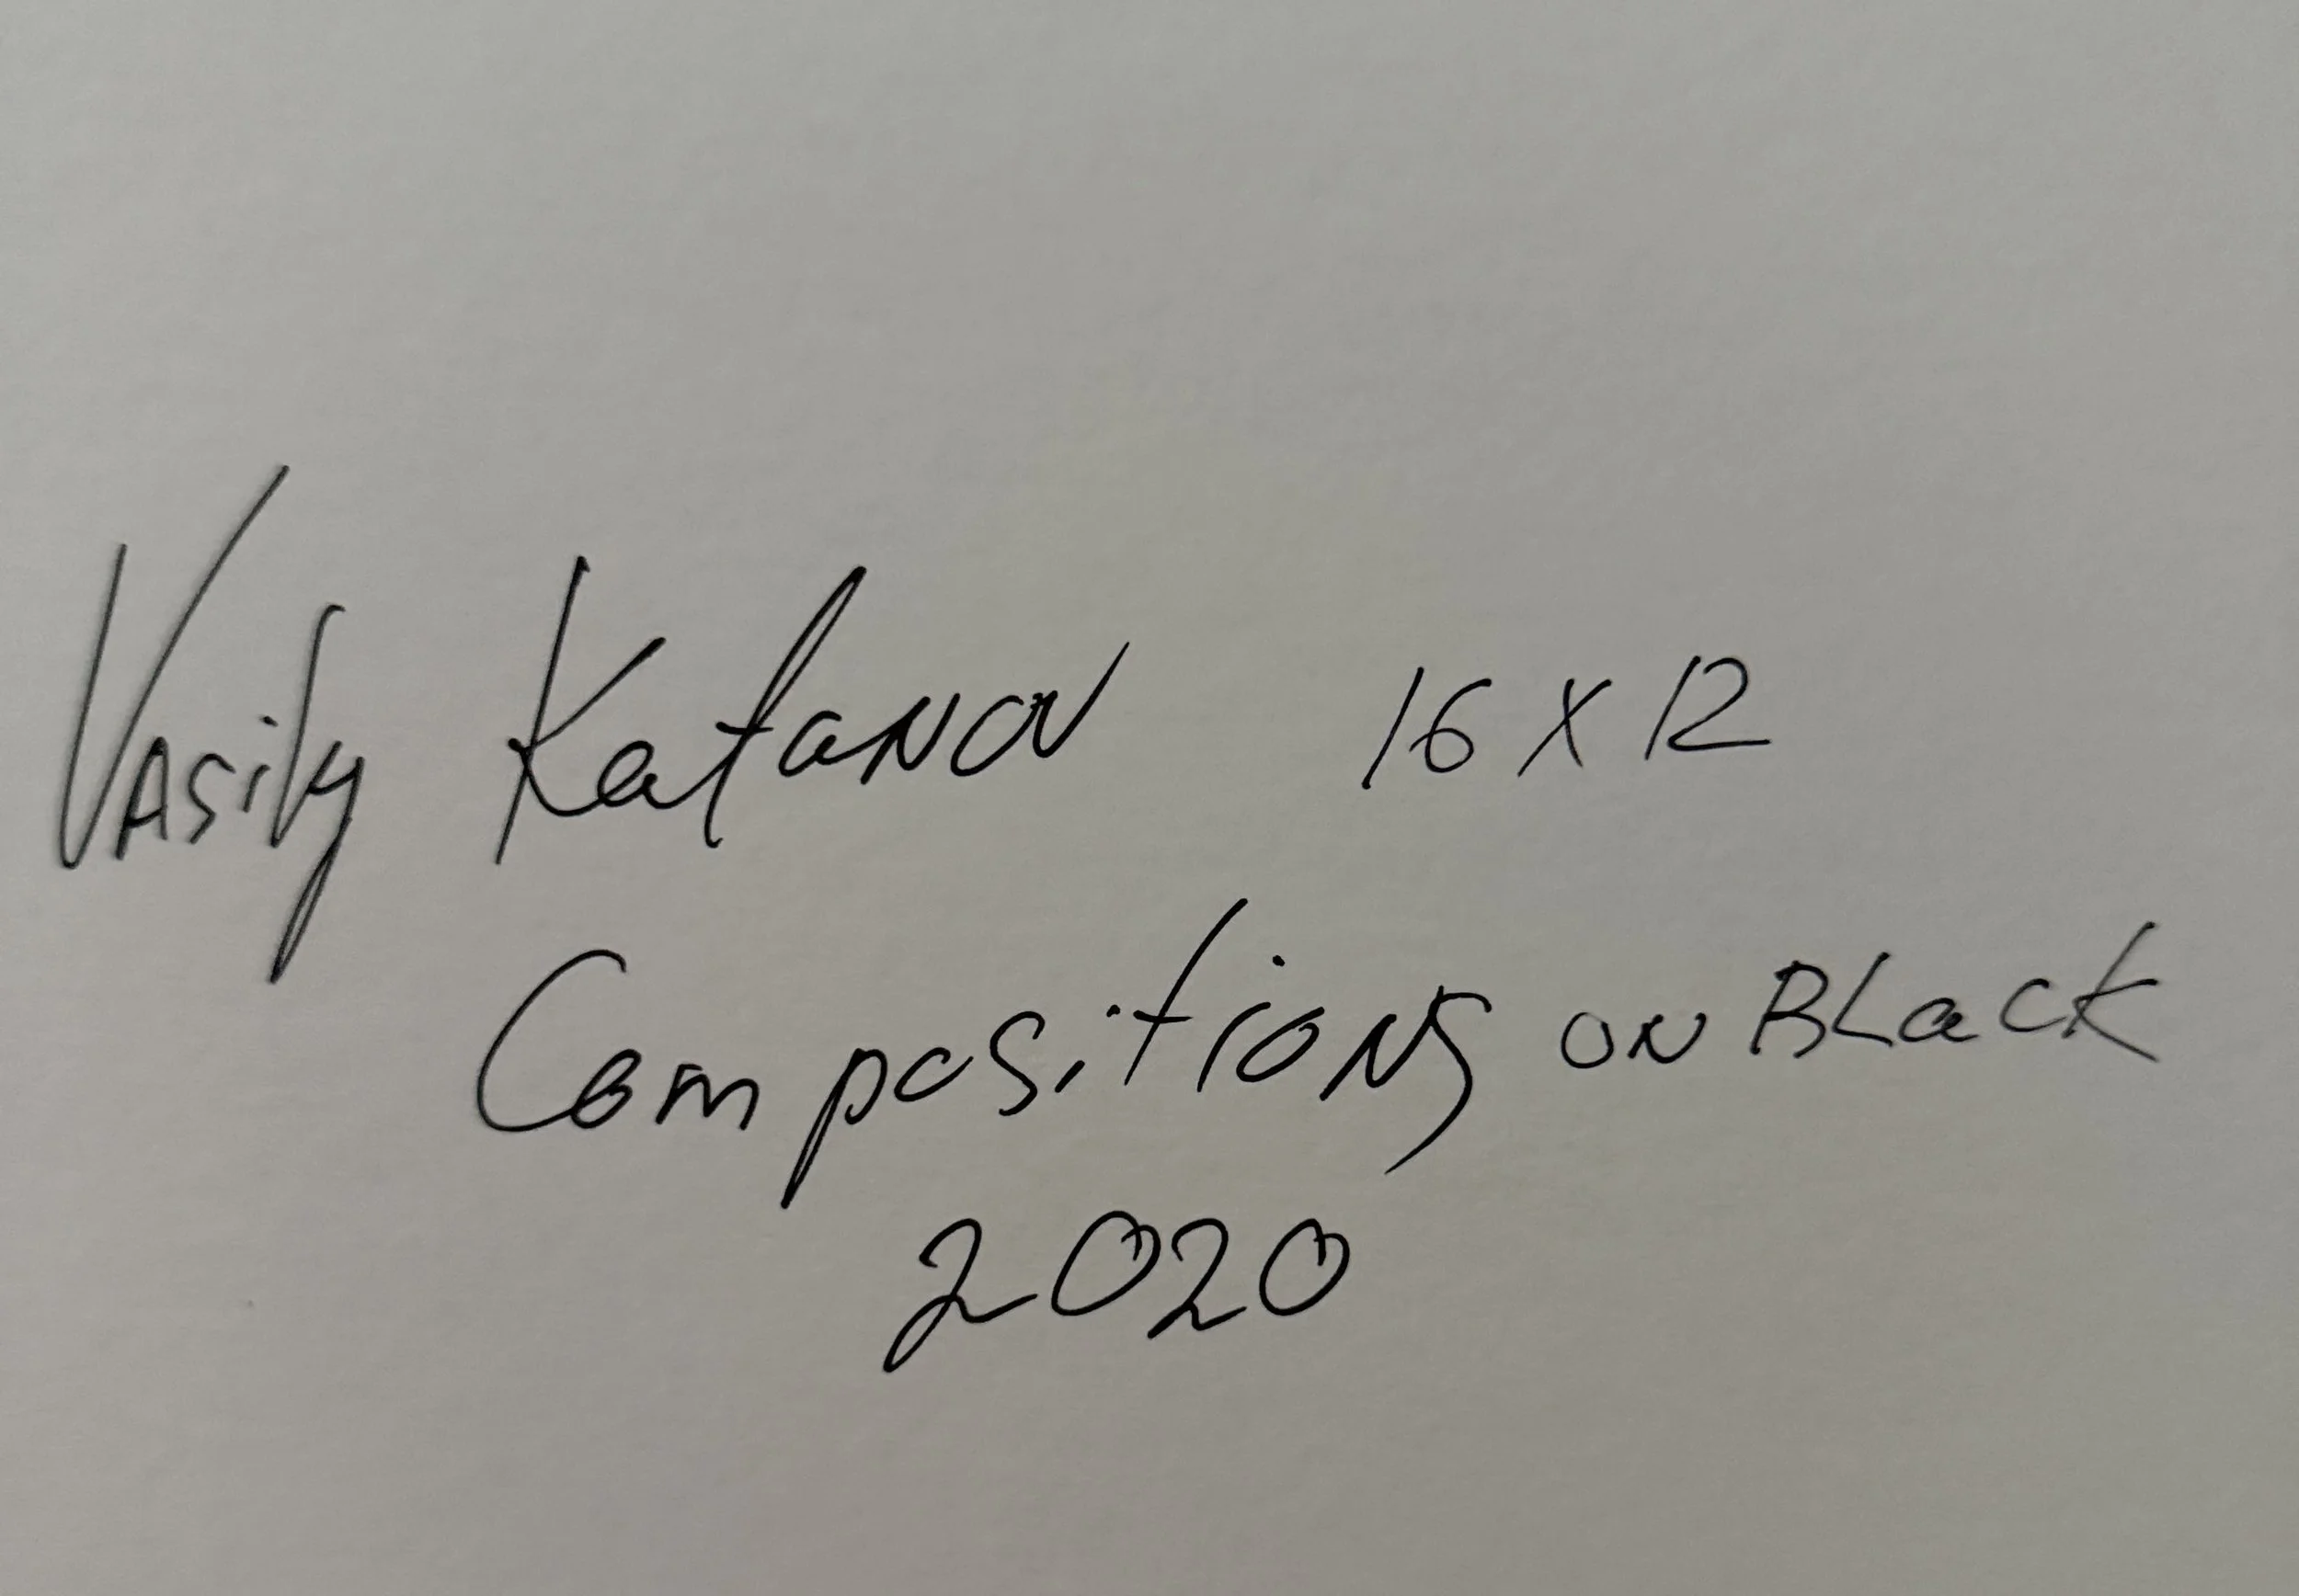 Vasily Katanov 16 x 12
Compositions on Black
2020